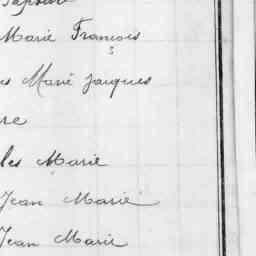 Marie François
Marie Jacques
re
les Marie
Jean Marie
Jean Marie